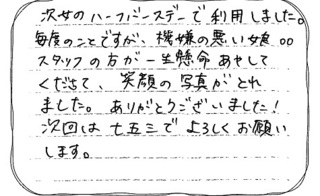 次女のハーフバースデーで利用しました。
毎度のことですが、機嫌の悪い娘。。
スタッフの方が一生懸命あやして
くださて、笑顔の写真がとれ
ました。ありがとうございました！
次回は七五三でよろしくお願い
します。